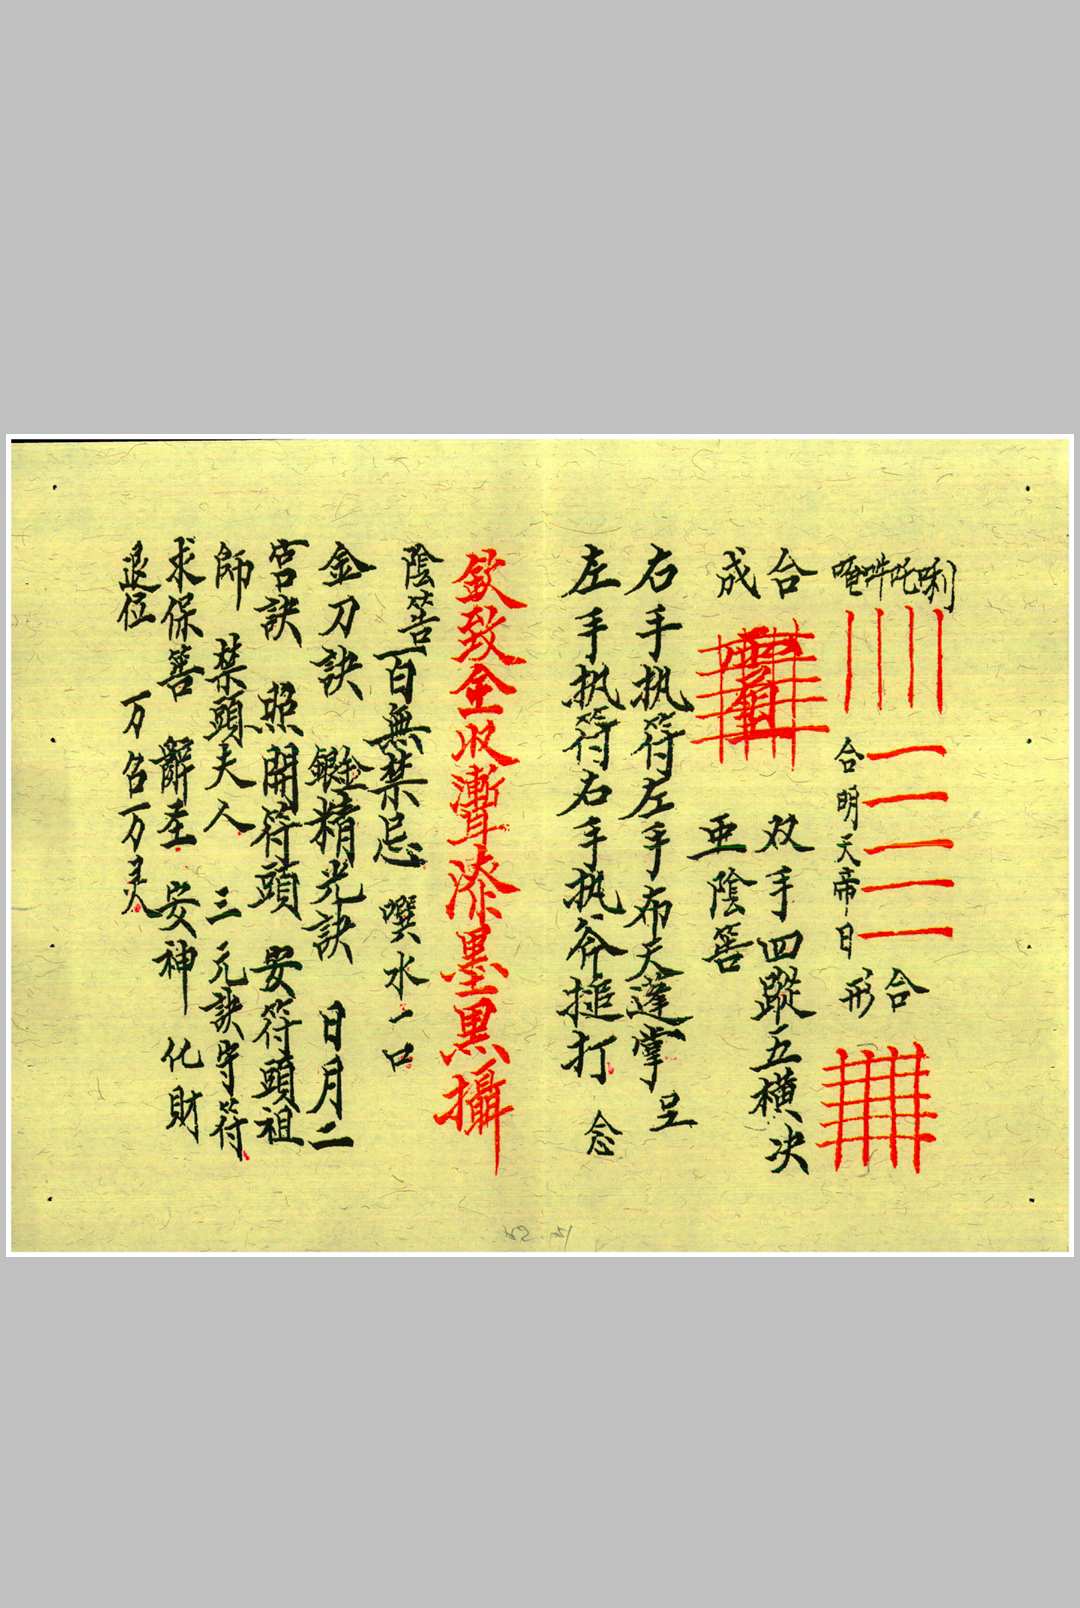 唵吽吒唎
合明天帝日
合形
合成
双手四蹤五横决
亜陰筶
右手执符左手布天蓬掌 呈
左手执符右手执斧搥打 念
欽致金收漸耳漆墨黒攝
陰筶 百無禁忌 噀水一口
金刀訣 鎯金精光訣 日月二
宮訣 照開符頭 安符頭祖
師 禁頭夫人 三元訣守符
求保筶 辭圣 安神 化財
退位 万名万灵